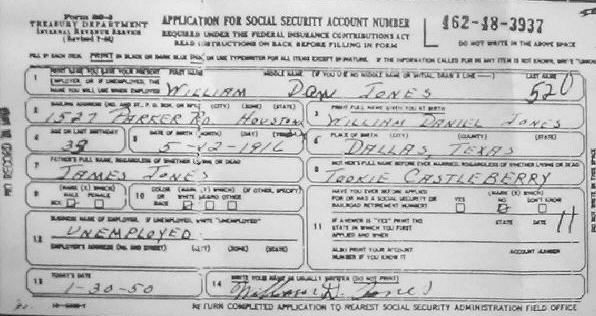 Form SS-5
TREASURY DEPARTMENT
INTERNAL REVENUE SERVICE
(Revised 7-44)
APPLICATION FOR SOCIAL SECURITY ACCOUNT NUMBER
REQUIRED UNDER THE FEDERAL INSURANCE CONTRIBUTIONS ACT
READ INSTRUCTIONS ON BACK BEFORE FILLING IN FORM
462-18-3937
DO NOT WRITE IN THE ABOVE SPACE
FILL IN EACH ITEM. PRINT IN BLACK OR DARK BLUE INK OR USE TYPEWRITER FOR ALL ITEMS EXCEPT SIGNATURE. IF THE INFORMATION CALLED FOR IN ANY ITEM IS NOT KNOWN, WRITE
1 PRINT NAME YOU GAVE YOUR PRESENT EMPLOYER, OR IF UNEMPLOYED, THE NAME YOU WILL USE WHEN EMPLOYED
FIRST NAME MIDDLE NAME (IF YOU USE NO MIDDLE NAME OR INITIAL, DRAW A LINE —) LAST NAME
WILLIAM DON JONES 520
2 MAILING ADDRESS (NO. AND ST., P. O. BOX, OR RFD) (CITY) (ZONE) (STATE)
1527 PARKER RD. HOUSTON
3 PRINT FULL NAME GIVEN YOU AT BIRTH
WILLIAM DANIEL JONES
4 AGE ON LAST BIRTHDAY
5 DATE OF BIRTH (MONTH) (DAY) (YEAR)
5-12-1916
6 PLACE OF BIRTH (CITY) (COUNTY) (STATE)
DALLAS, TEXAS
7 FATHER'S FULL NAME, REGARDLESS OF WHETHER LIVING OR DEAD
JAMES JONES
8 MOTHER'S FULL NAME BEFORE EVER MARRIED, REGARDLESS OF WHETHER LIVING OR DEAD
TOOKIE CASTLEBERRY
9 SEX (MARK (X) WHICH) MALE FEMALE
10 COLOR OR RACE (MARK (X) WHICH) WHITE NEGRO OTHER (IF OTHER, SPECIFY)
11 HAVE YOU EVER BEFORE APPLIED FOR OR HAD A SOCIAL SECURITY OR RAILROAD RETIREMENT NUMBER?
(MARK (X) WHICH) YES NO DON'T KNOW
IF ANSWER IS "YES" PRINT THE STATE IN WHICH YOU FIRST APPLIED AND WHEN
STATE DATE
11
ALSO PRINT YOUR ACCOUNT NUMBER IF YOU KNOW IT
ACCOUNT NUMBER
12 BUSINESS NAME OF EMPLOYER. IF UNEMPLOYED, WRITE "UNEMPLOYED"
UNEMPLOYED
EMPLOYER'S ADDRESS (NO. AND STREET) (CITY) (ZONE) (STATE)
13 TODAY'S DATE
1-30-50
14 WRITE YOUR NAME AS USUALLY WRITTEN (DO NOT PRINT)
William D. Jones
RETURN COMPLETED APPLICATION TO NEAREST SOCIAL SECURITY ADMINISTRATION FIELD OFFICE